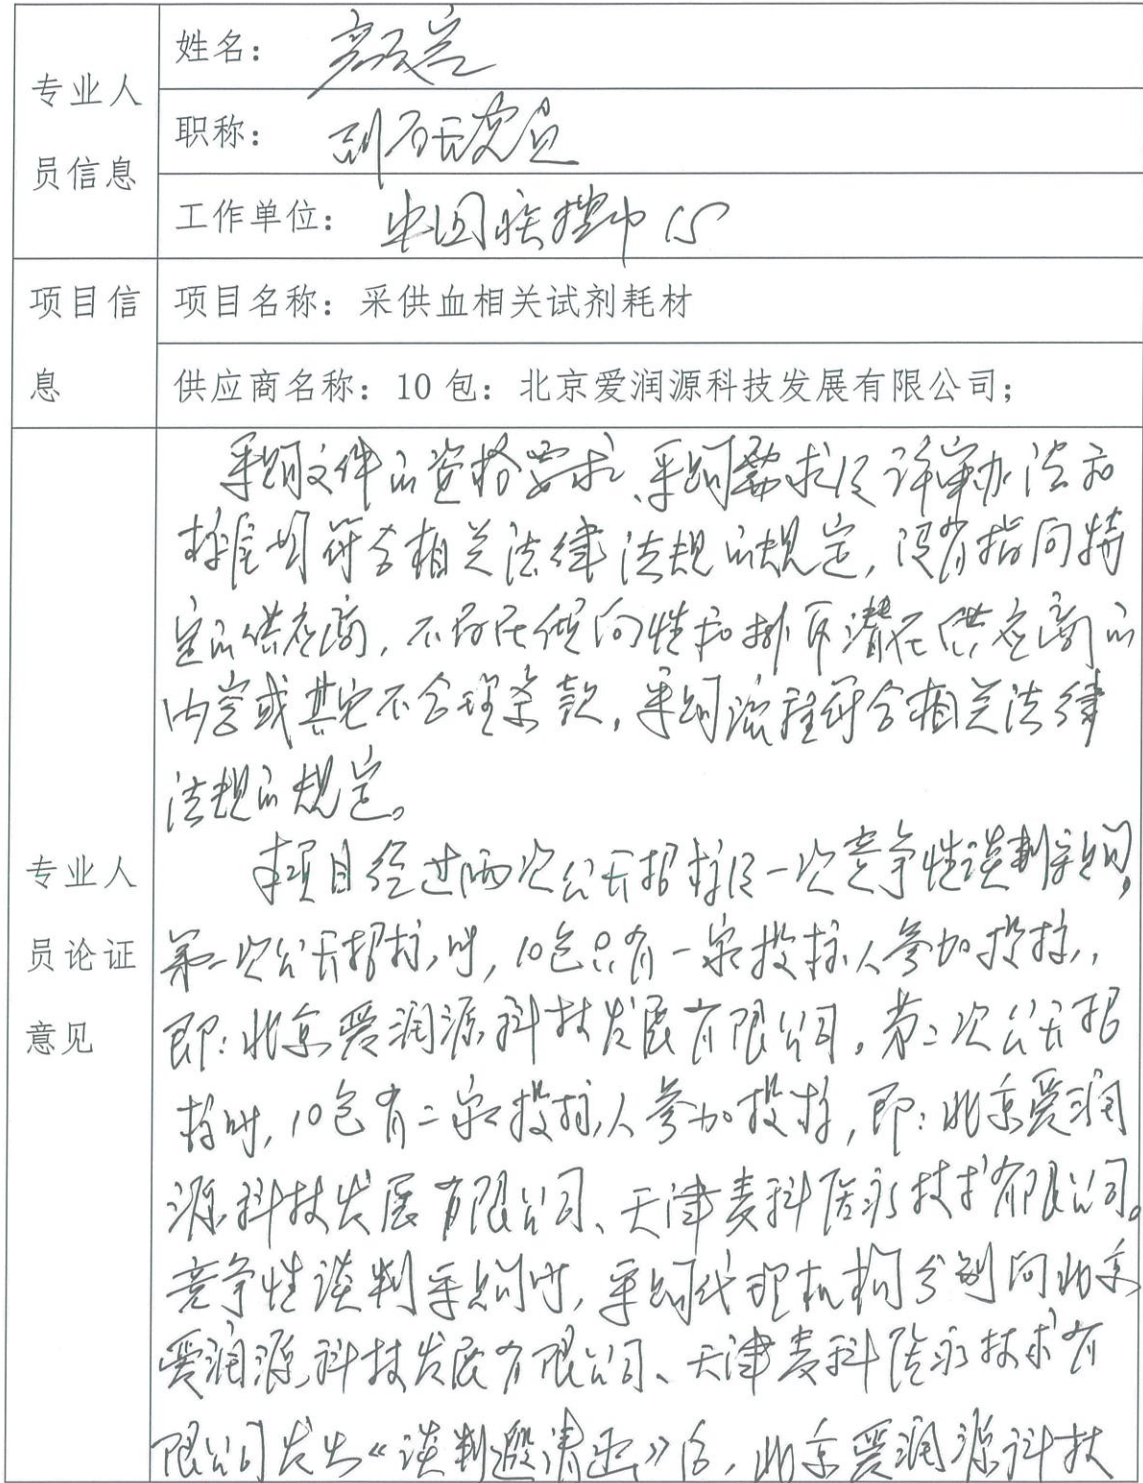 专业人
员信息
姓名：
职称：副研究员
工作单位：中国疾控中心
项目信
息
项目名称：采供血相关试剂耗材
供应商名称：10 包：北京爱润源科技发展有限公司；
专业人
员论证
意见
采购文件的资格要求、采购需求及评审办法和
标准均符合相关法律法规的规定，没有指向特
定的供应商，不存在倾向性和排斥潜在供应商的
内容或其它不合理条款，采购流程符合相关法律
法规的规定。
本项目经过两次公开招标及一次竞争性谈判采购，
第一次公开招标时，10包只有一家投标人参加投标，
即：北京爱润源科技发展有限公司，第二次公开招
标时，10包有二家投标人参加投标，即：北京爱润
源科技发展有限公司、天津麦科信永技术有限公司。
竞争性谈判采购时，采购代理机构分别向北京
爱润源科技发展有限公司、天津麦科信永技术有
限公司发出《谈判邀请函》后，北京爱润源科技